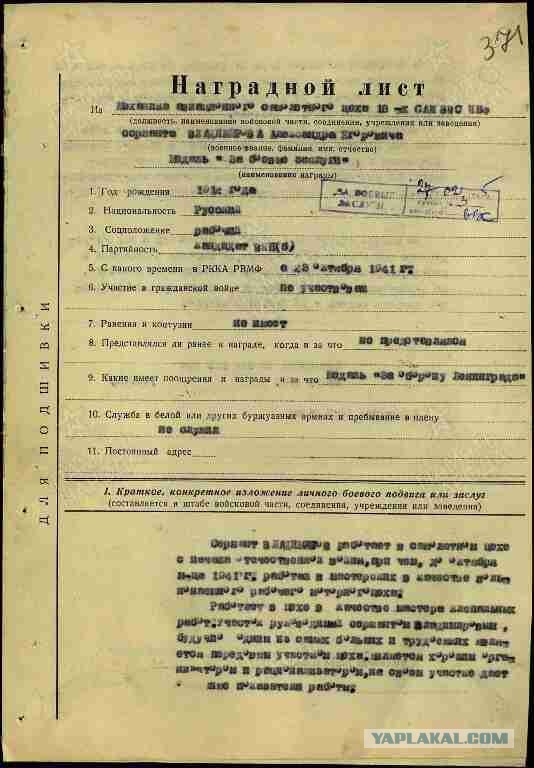 371
Наградной лист
На Механика авиационного самолетного цеха 10-х САМ ВВС
(должность, наименование войсковой части, соединения, учреждения или заведения)
сержанта ВЛАДИМИРОВА Александра Егоровича
(военное звание, фамилия, имя, отчество)
Медаль "За боевые заслуги"
(наименование награды)
1. Год рождения года
ЗА БОЕВЫЕ
ЗАСЛУГИ
2. Национальность Русский
3. Соцположение рабочий
4. Партийность кандидат ВКП(б)
5. С какого времени в РККА РВМФ с 23 октября 1941 г.
6. Участие в гражданской войне не участвовал
7. Ранения и контузии не имеет
8. Представлялся ли ранее к награде, когда и за что не представлялся
9. Какие имеет поощрения и награды и за что Медаль "За оборону Ленинграда"
10. Служба в белой или других буржуазных армиях и пребывание в плену
не служил
11. Постоянный адрес
ДЛЯ ПОДШИВКИ
I. Краткое, конкретное изложение личного боевого подвига или заслуг
(составляется в штабе войсковой части, соединения, учреждения или заведения)
Сержант ВЛАДИМИРОВ работает в самолетном цехе
с начала отечественной войны, при чем, до октября
м-ца 1941 г. работал в мастерских в качестве вольно
наемного рабочего моторного цеха.
Работает в цехе в качестве мастера клепальных
работ. Участок руководимый сержантом Владимировым,
будучи один из самых больших и трудоемких являет
ся передовым участком цеха. Является хорошим орга
низатором и рационализатором, на своем участке дает
показатели работы.
YAPLAKAL.COM